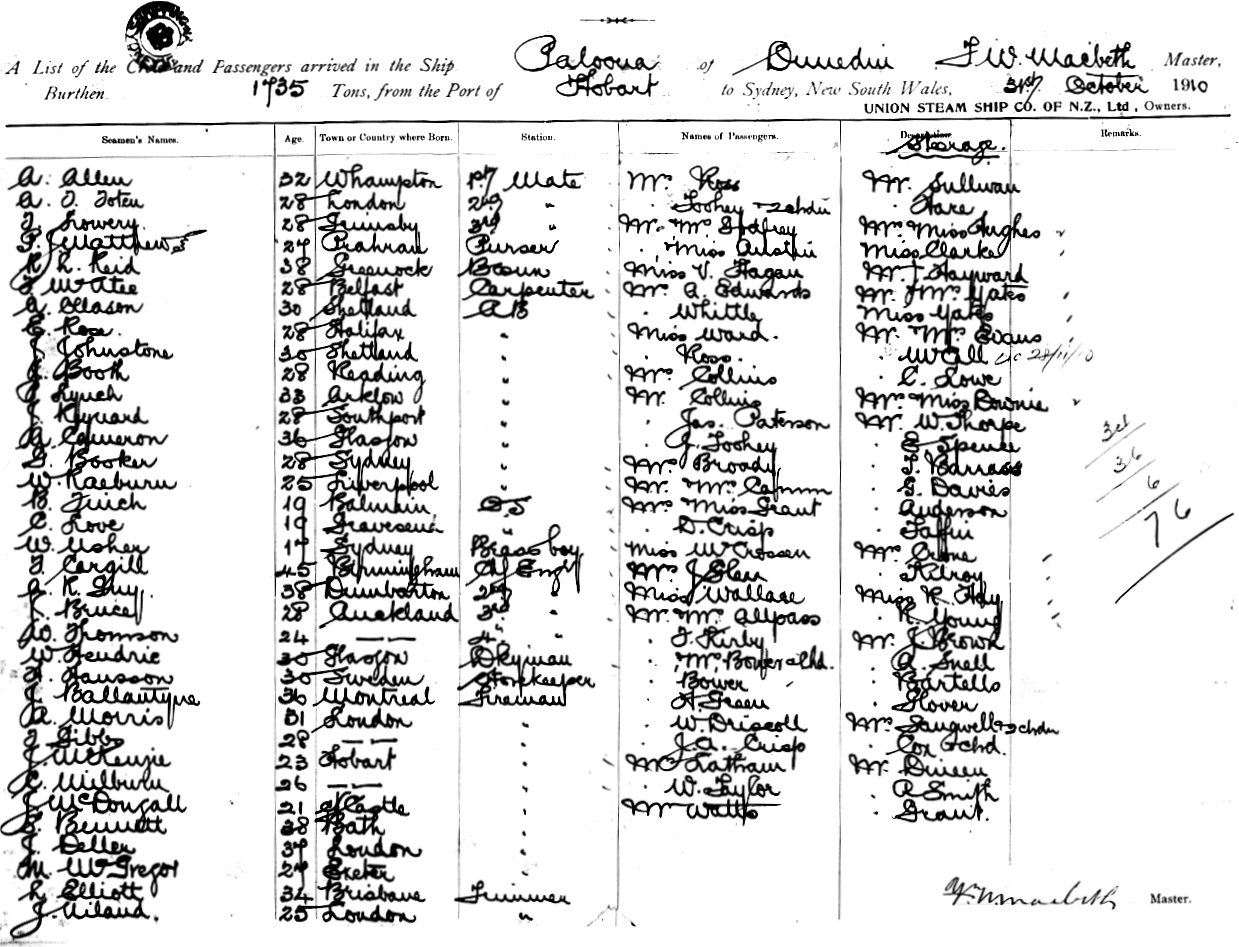 A List of the Crew and Passengers arrived in the Ship Paloona of Dunedin F W. Macbeth Master,
Burthen 1735 Tons, from the Port of Hobart to Sydney, New South Wales, 31st October 1910
UNION STEAM SHIP CO. OF N.Z., Ltd, Owners.
Seamen's Names. Age. Town or Country where Born. Station. Names of Passengers. Steerage. Remarks.
A. Allen 32 Whampton 1st Mate Mr. Ross Mr. Sullivan
A. 28 London 2nd " Toohey + 2 chdn " Hare
Lowery 28 Grimsby 3rd " Mr. Mrs Godfrey Mrs Miss Hughes
Matthews 27 Prahran Purser " Miss Austin Miss Clarke
R. L. Reid 38 Greenock Bosun Miss V. Hagan Mr. Hayward
McAtee 28 Belfast Carpenter Mr. A. Edwards Mr. Mrs Yates
A. Gleason 30 Shetland AB " Whittle Miss Yates
C. Rose. 28 Halifax " Miss Ward. Mr Mrs Evans
J. Johnstone 30 Shetland " Ross. 28/11/10
Booth 28 Reading " Mrs Collins " C. Lowe
Lynch 33 Arklow " Mr. Collins Mrs Miss Bownie
J. Kynard 28 Southport " Jas. Paterson Mr. W. Thorpe
A. Cameron 36 Glasgow " J. Toohey " Spence
G. Booker 28 Sydney " Mr. Broady " Barrass
W. Raeburn 25 Liverpool " Mr. Mrs " G. Davies
B. Finch 19 Balmain OS Mrs Miss Grant " Anderson
C. Love 19 Gravesend " D. Crisp
W. Usher 17 Sydney Brass boy Miss McCrossen Mrs Crone
Cargill 45 Birmingham Chf Engr Mrs J. " Kilroy
A. R. Guy 38 Dumbarton 2nd " Miss Wallace Miss R. Hay
Bruce 28 Auckland 3rd " Mr. Mrs Allpass " R. Young
W. Thomson 24 —— 4. " " J. Kirby Mr. J. Brown
W. Hendrie 30 Glasgow Dkyman " Mrs Bower + chd. " A. Snell
Hansson 30 Sweden Storekeeper " Bower " Bartells
J. Ballantyne 36 Montreal Fireman " H. Green " Glover
A. Morris 31 London " " W. Driscoll Mrs Sangwell + 2 chdn
Gibb 28 —— " " J. A. Crisp " Cox + chd.
J. McKenzie 23 Hobart " Mr Latham Mr. Dineen
C. Milburn 26 —— " " W. Taylor " A Smith
J. McDougall 21 NCastle " Mr Watts " Grant.
Bennett 38 Bath "
J. Deller 37 London "
M. McGregor 27 Exeter "
L. Elliott 34 Brisbane Trimmer
J. 25 London "
36
6
76
F. W. Macbeth Master.